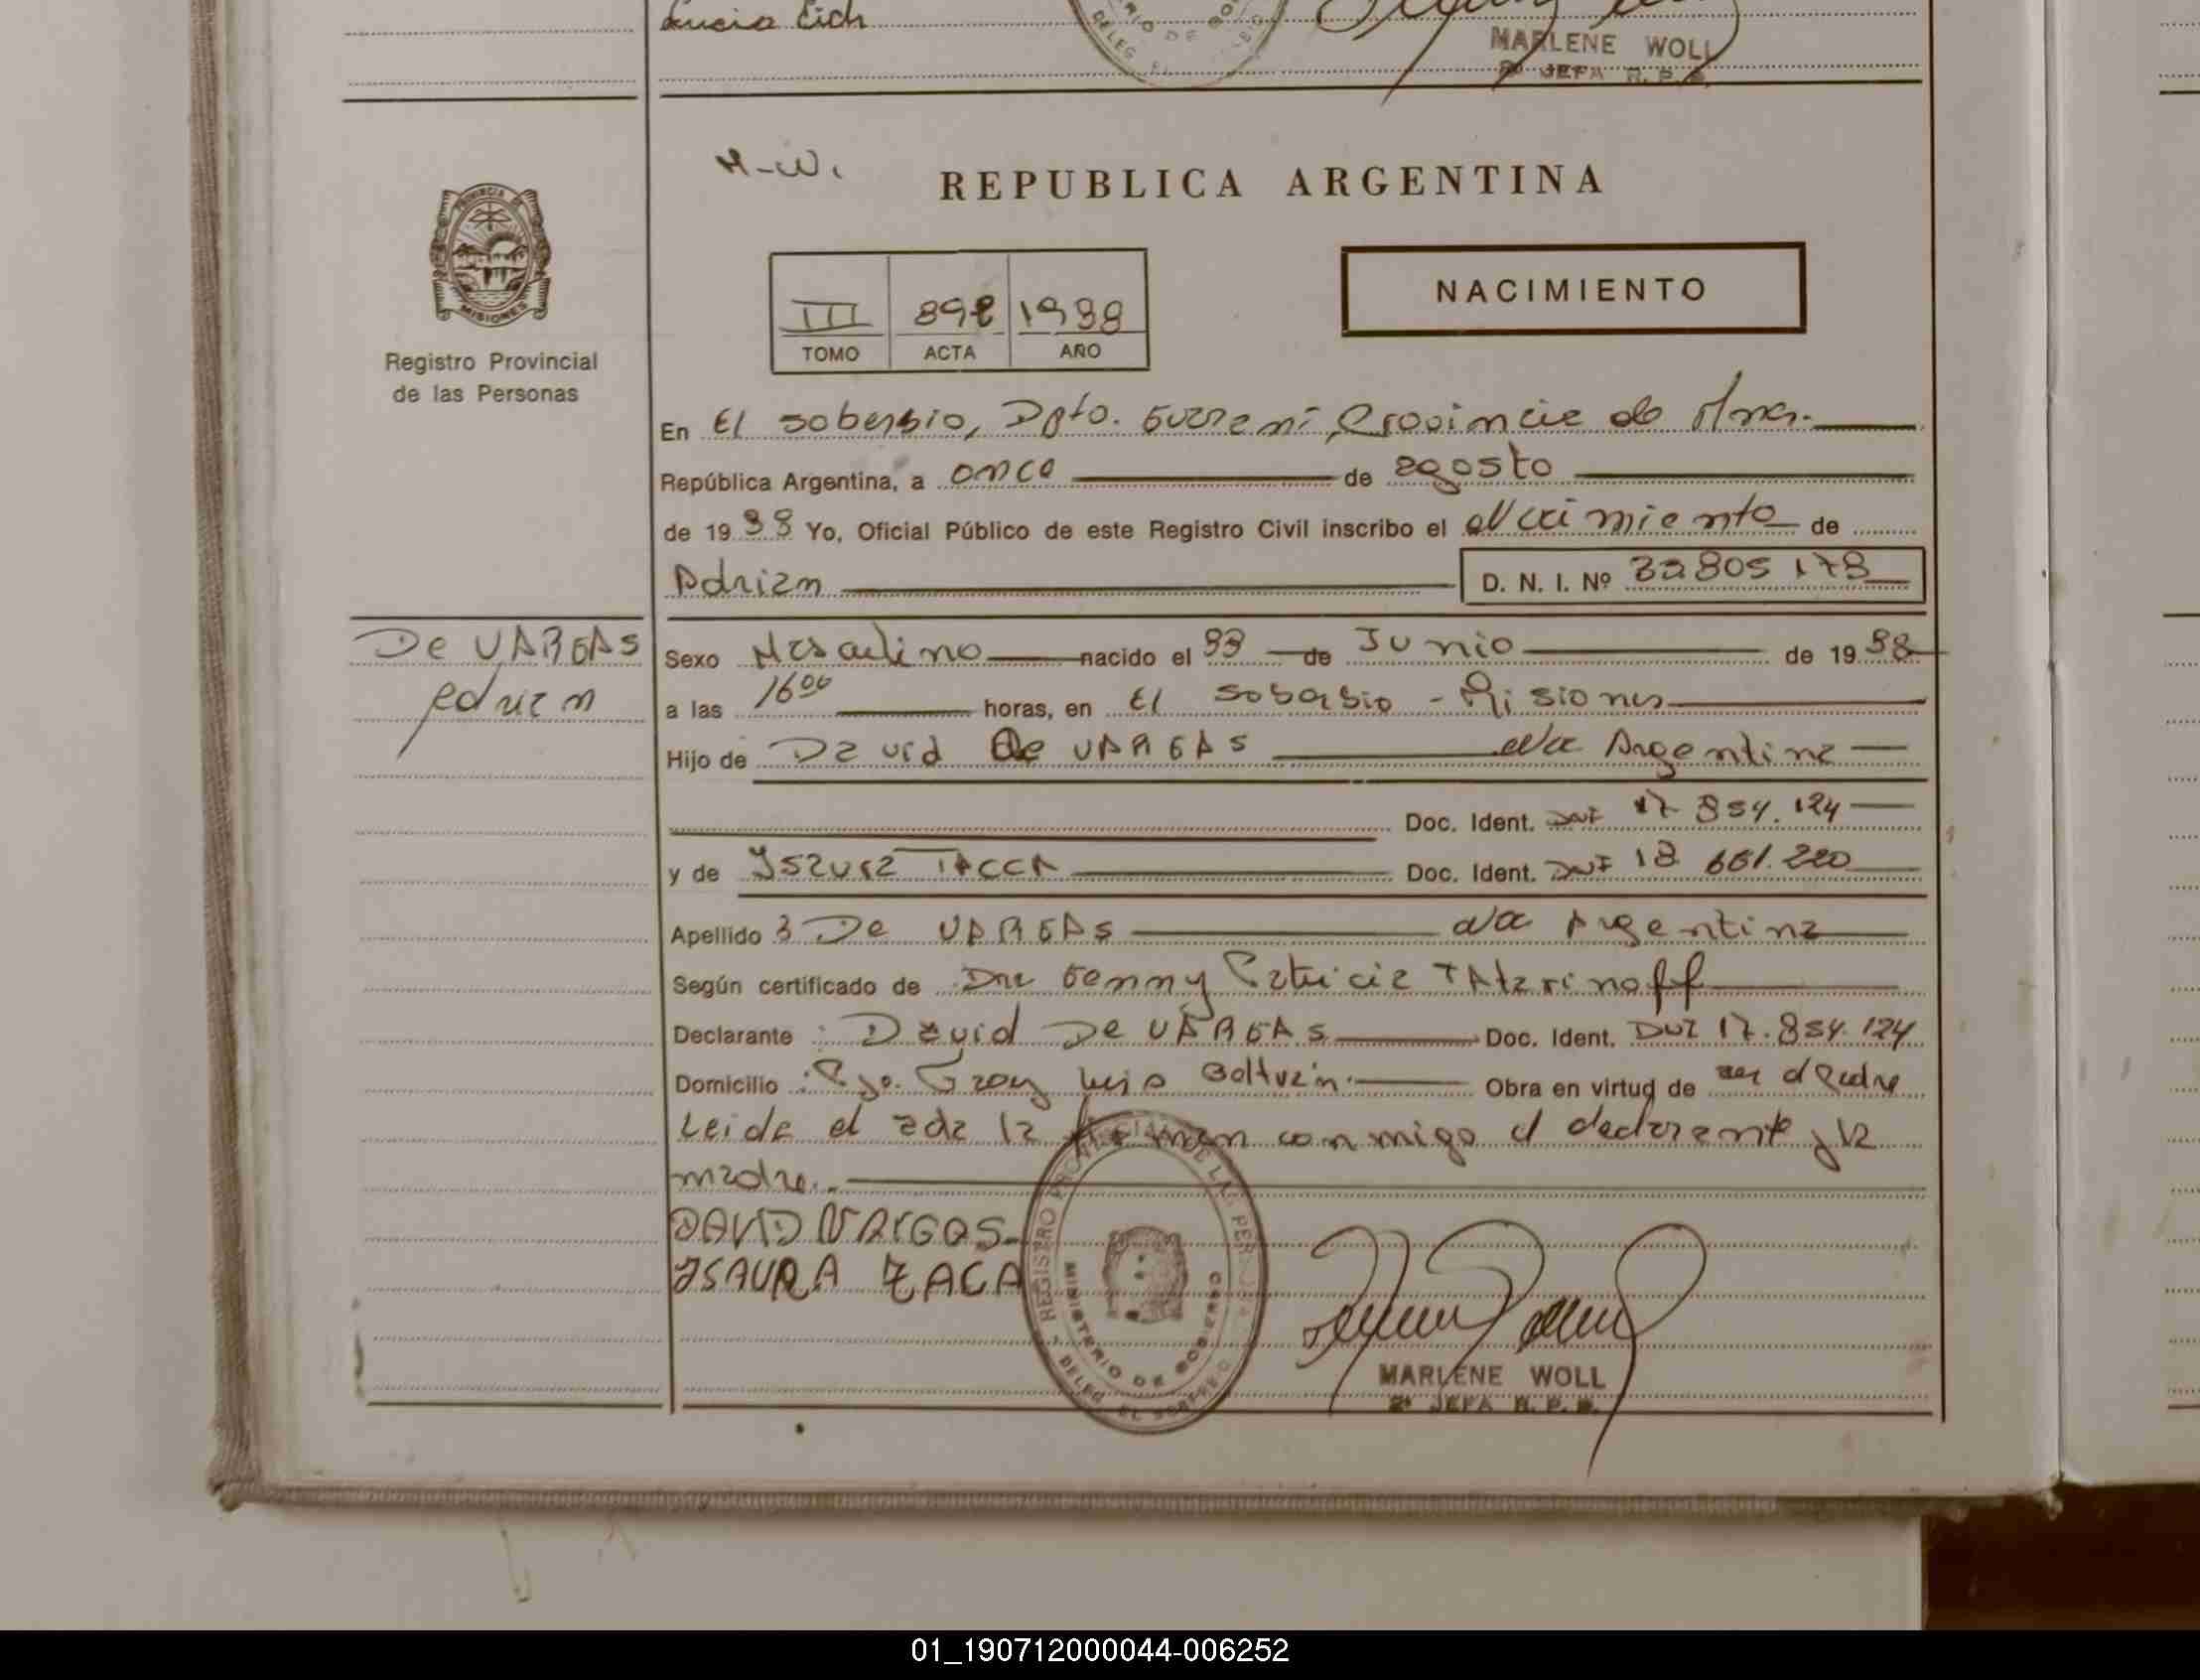 Lucia Eich
MARLENE WOLL
2ª JEFA R. P.
M-W.
REPUBLICA ARGENTINA
PROVINCIA DE
MISIONES
Registro Provincial
de las Personas
III 892 1988
TOMO ACTA AÑO
NACIMIENTO
En El Soberbio, Dpto. Guarani, Provincia de Mnes.
República Argentina, a once de agosto
de 1988 Yo, Oficial Público de este Registro Civil inscribo el Nacimiento de
Adrian D. N. I. Nº
De VARGAS
Adrian
Sexo Masculino nacido el de Junio de 1988
a las 16 00 horas, en El Soberbio - Misiones
Hijo de David De VARGAS Na Argentina
Doc. Ident. DNI 17.854.124
y de Isaura TACCA Doc. Ident. DNI 18.661.220
Apellido De VARGAS Na Argentina
Según certificado de Dra Genny Patricia TAtarinoff
Declarante : David De VARGAS Doc. Ident. DNI 17.854.124
Domicilio : Pje. Fray Luis Beltran. Obra en virtud de ser el Padre
Leida el acta la firman conmigo el declarante y la
madre.
DAVID VARGAS
ISAURA ZACA
REGISTRO PROVINCIAL DE LAS PERSONAS
MINISTERIO DE GOBIERNO
DELEG. EL SOBERBIO
MARLENE WOLL
2ª JEFA R. P.
01_190712000044-006252